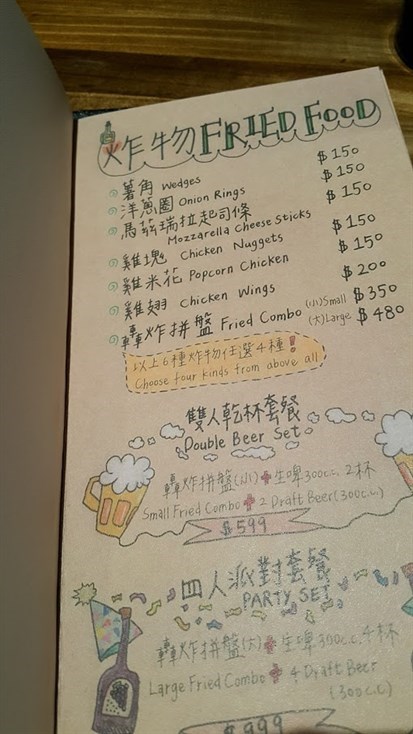 炸物 FRIED FOOD
薯角 Wedges $150
洋蔥圈 Onion Rings $150
馬茲瑞拉起司條 Mozzarella Cheese Sticks $150
雞塊 Chicken Nuggets $150
雞米花 Popcorn Chicken $150
雞翅 Chicken Wings $200
轟炸拼盤 Fried Combo (小)Small $350
(大)Large $480
以上6種炸物任選4種!
Choose four kinds from above all
雙人乾杯套餐
Double Beer Set
轟炸拼盤(小)+生啤300c.c. 2杯
Small Fried Combo + 2 Draft Beer (300c.c.)
$599
四人派對套餐
PARTY SET
轟炸拼盤(大)+生啤300c.c. 4杯
Large Fried Combo + 4 Draft Beer
(300c.c)
$999